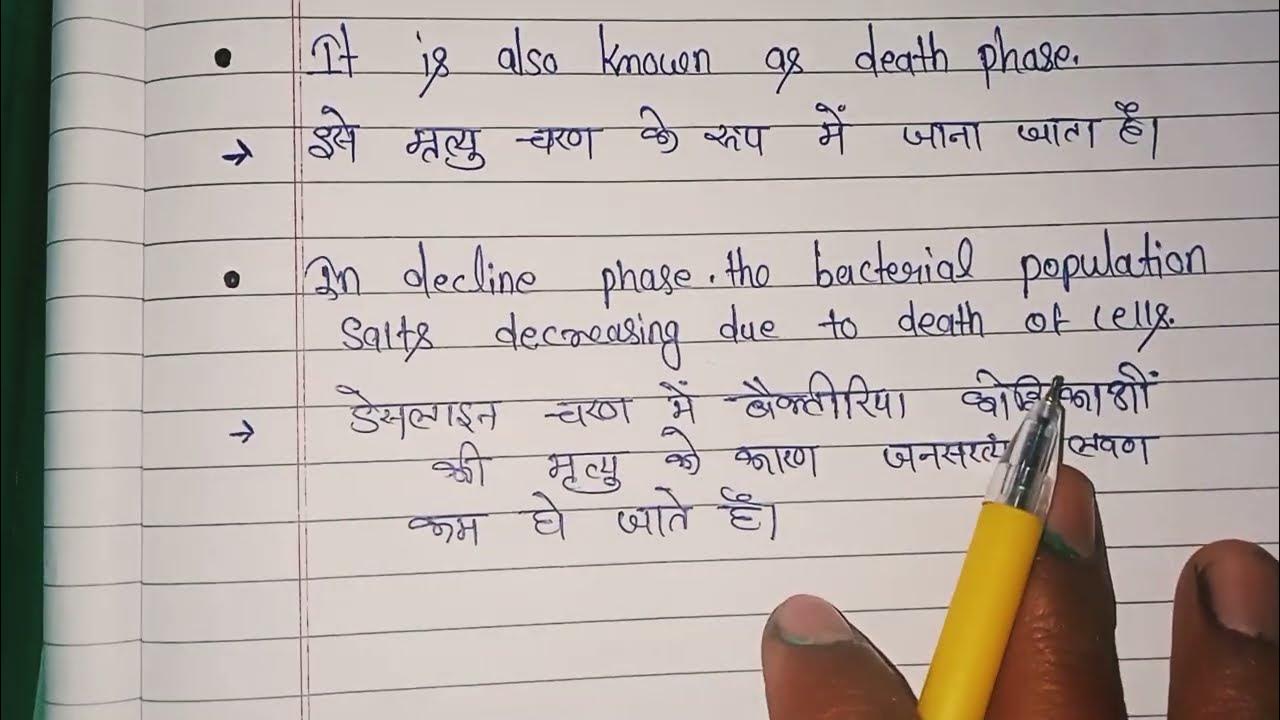 It is also known as death phase.
इसे मृत्यु चरण के रूप में जाना जाता है।
In decline phase. the bacterial population
salts decreasing due to death of cells.
डेसलाइन चरण में बैक्तीरिया कोशिकाओं
की मृत्यु के कारण लवण
कम हो जाते है।